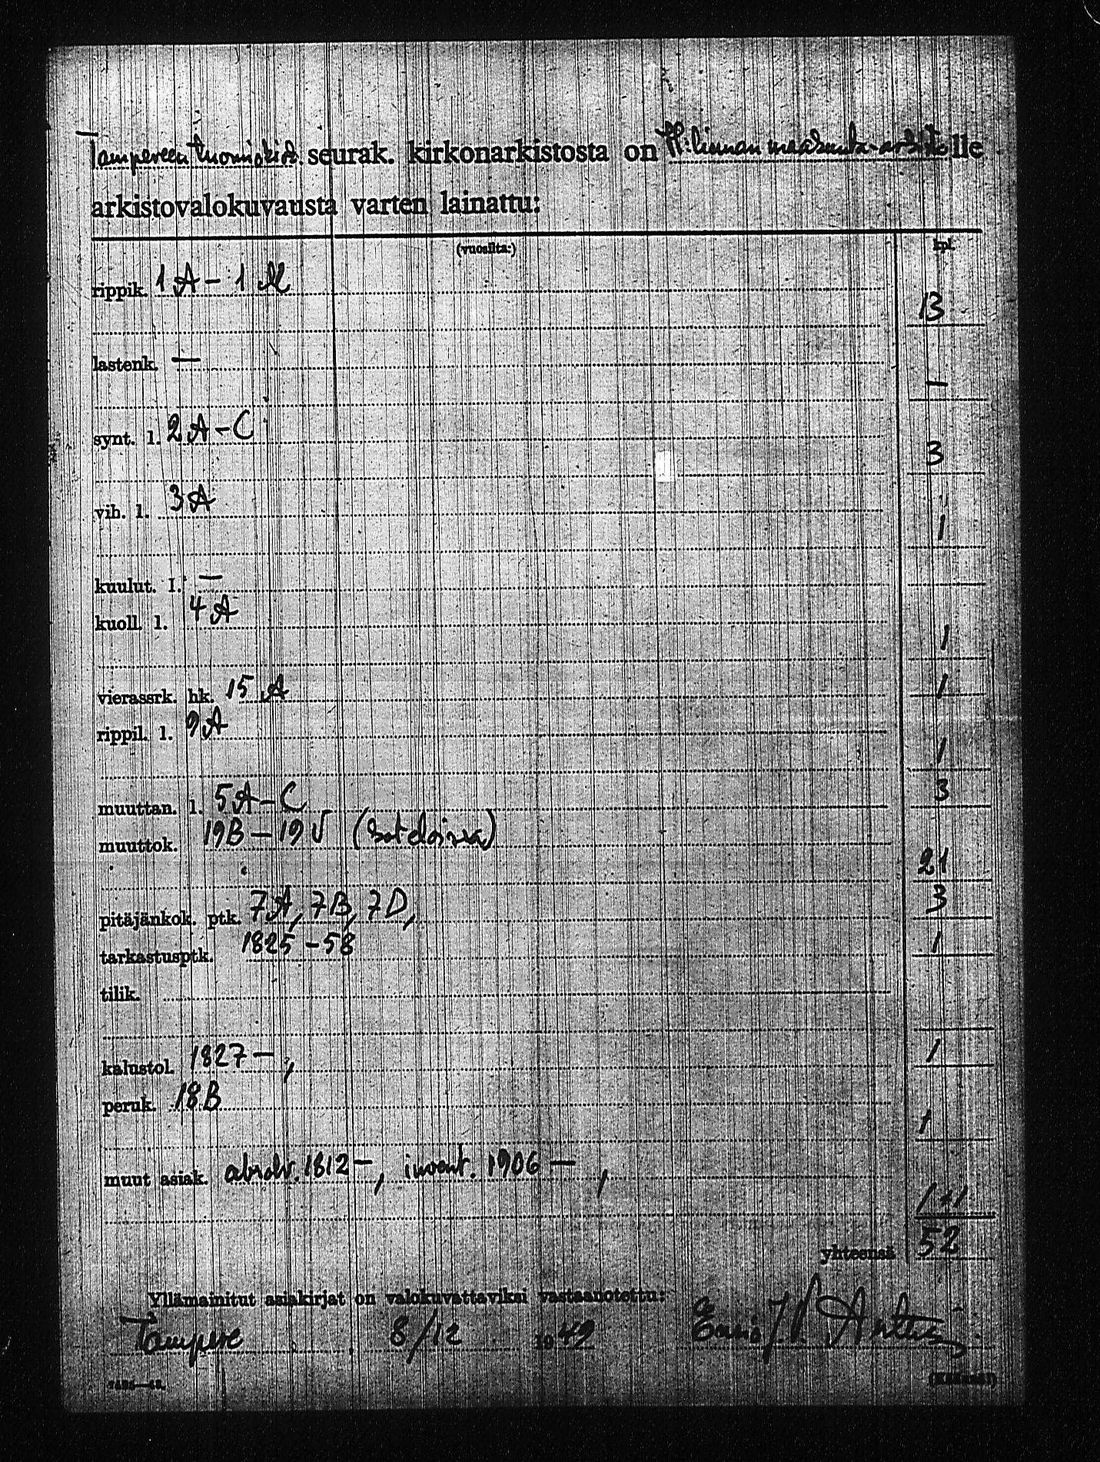 Tampereen tuomiokirk. seurak. kirkonarkistosta on H:linnan maakunta-arkistolle
arkistovalokuvausta varten lainattu:
(vuosilta:) kpl.
rippik. 1A-1M 13
lastenk. — —
synt. l. 2A-C 3
vih. l. 3A 1
kuulut. l. —
kuoll. l. 4A 1
vierassrk. hk. 15A 1
rippil. l. 9A 1
muuttan. l. 5A-C 3
muuttok. 19B-19V (koteloissa) 21
pitäjänkok. ptk. 7A, 7B, 7D, 3
tarkastusptk. 1825-58 1
tilik.
kalustol. 1827-, 1
peruk. 18B 1
muut asiak. 1812-, invent. 1906-, 1+1
yhteensä 52
Yllämainitut asiakirjat on valokuvattaviksi vastaanotettu:
Tampere 8/12 1949
(Käännä!)